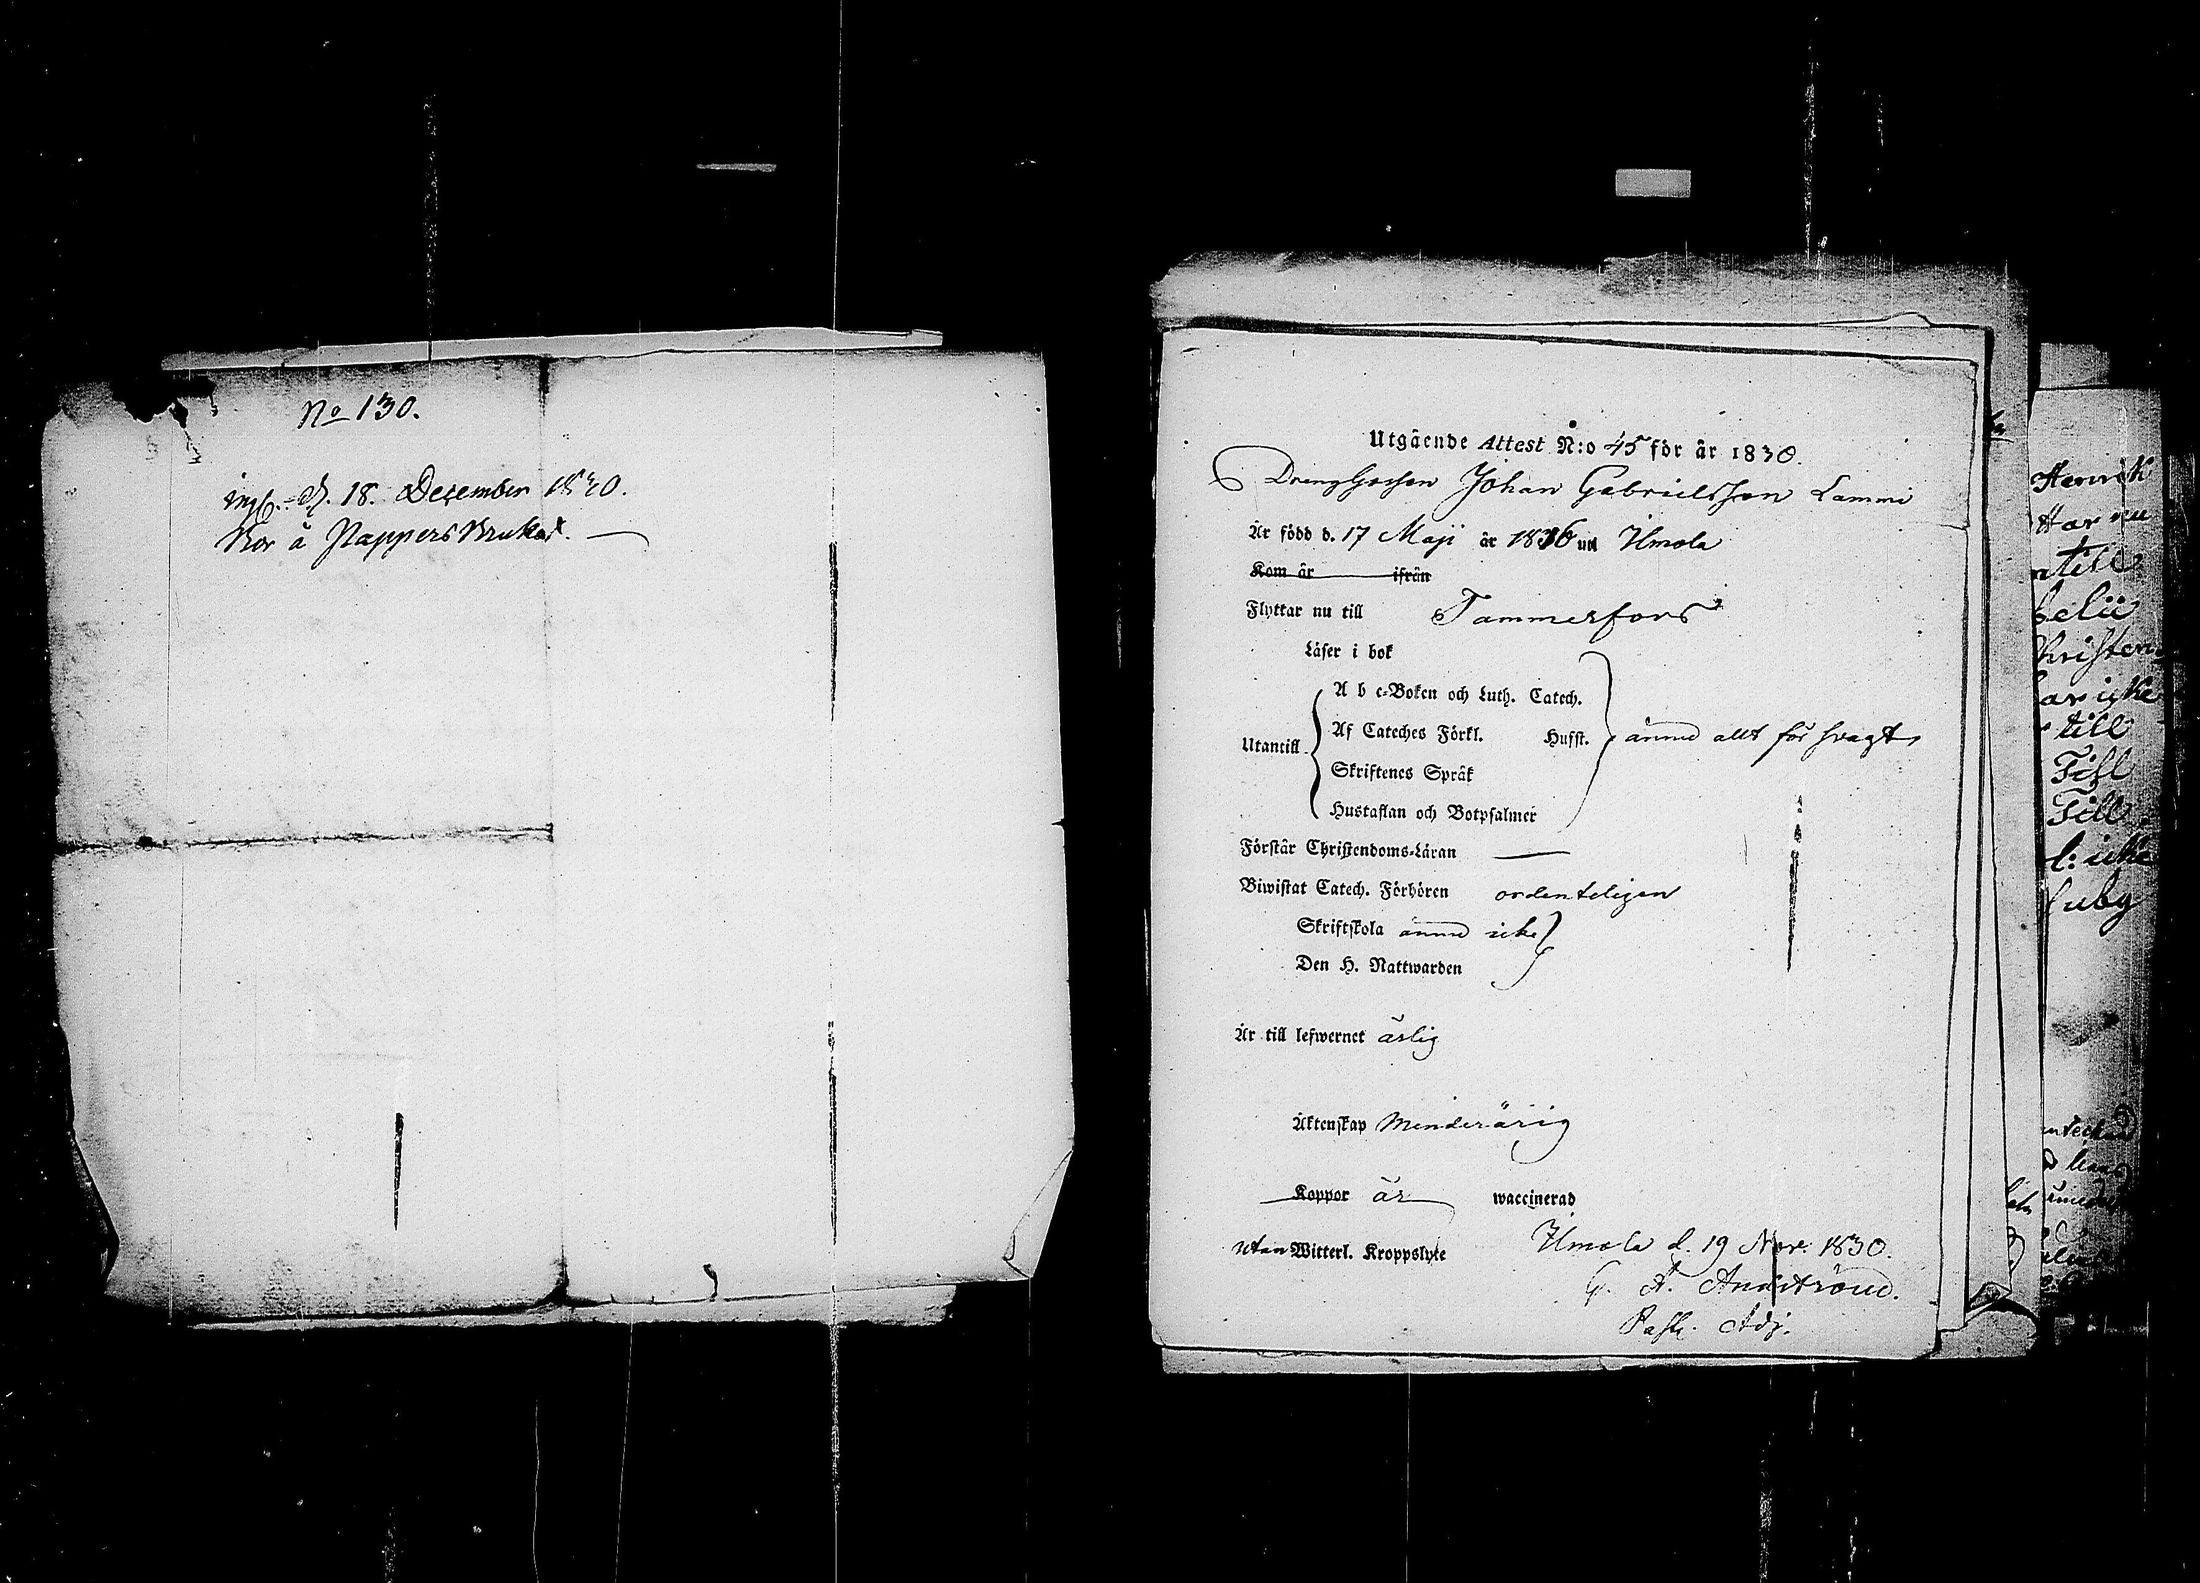 No 130.
d. 18. December 1830.
Bor å Pappers Bruket.
Utgående Attest N:o 45 för år 1830.
Dreng Gossen Johan Gabrielsson Lammi
Är född d. 17 Maji år 1816 uti Ilmola
Kom år ifrån
Flyttar nu till Tammerfors
Läser i bok
A b c-Boken och Luth. Catech.
Utantill Af Cateches Förkl. Hufst. ännu allt för svagt
Skriftenes Språk
Hustaflan och Botpsalmer
Förstår Christendoms-Läran
Biwistat Catech. Förhören ordenteligen
Skriftskola ännu icke
Den H. Nattwarden
Är till lefwernet ärlig
Äktenskap Minderårig
Koppor är waccinerad
utan Witterl. Kroppslyte
Ilmola d. 19 Nov. 1830.
G. A.
Past. Adj.
Henrik
Har nu
till
Christen
icke
till
Till
Till
icke